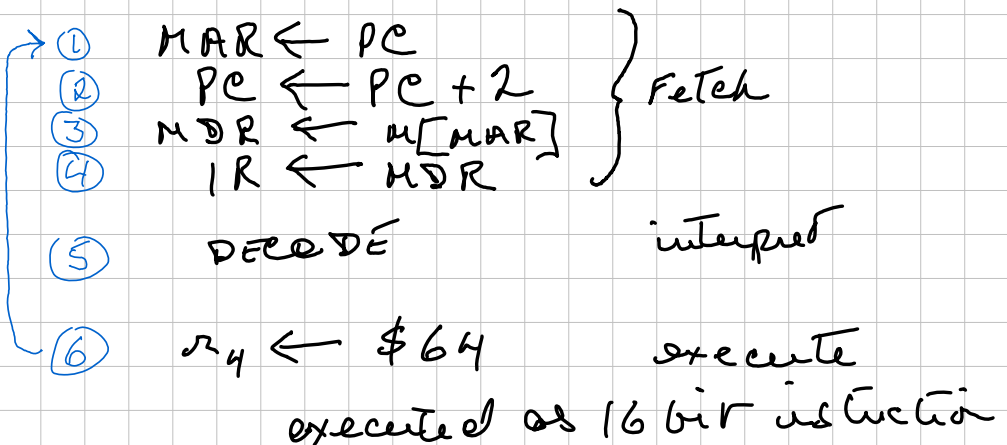 ① MAR ← PC
② PC ← PC + 2 } Fetch
③ MDR ← M[MAR]
④ IR ← MDR
⑤ DECODE interpret
⑥ r4 ← $64 execute
executed as 16 bit instuction